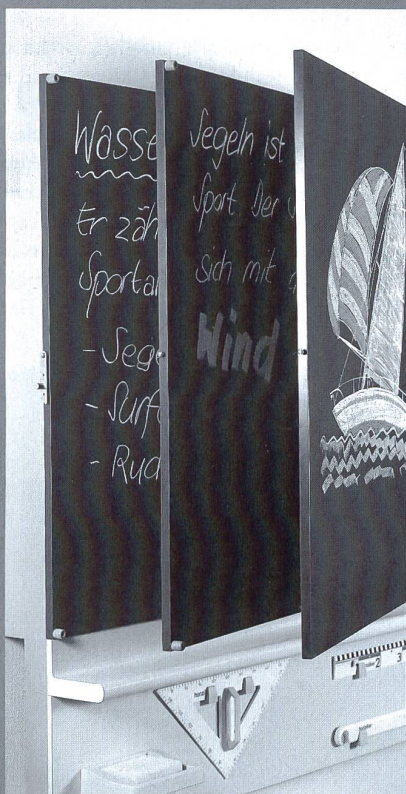 Wasse
Er zäh
Sporta
- Sege
- Surf
- Rud
Segeln ist
Sport Der
sich mit
Wind
2 3